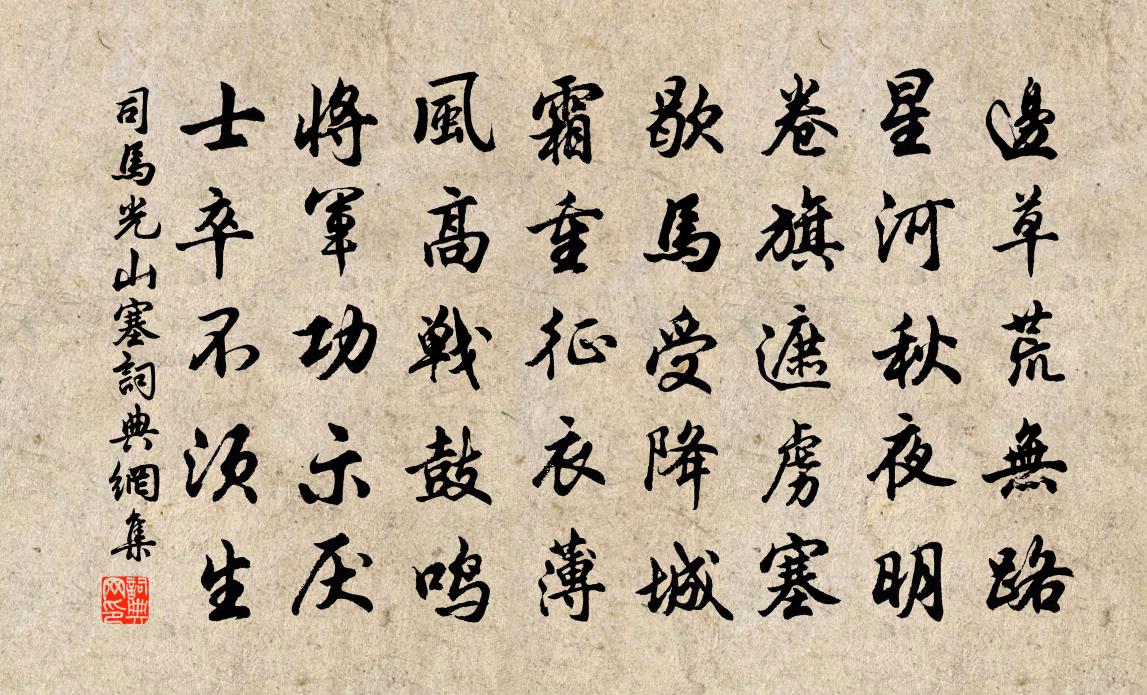 邊草荒無路
星河秋夜明
卷旗遮虜塞
歇馬受降城
霜重征衣薄
風高戰鼓鳴
將軍功示厌
士卒不須生
司馬光山塞詞典網集
詞典網印